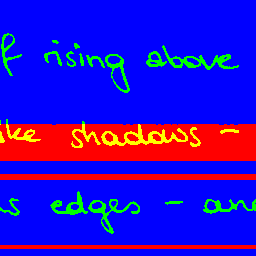 f rising above
ike shadows -
s edges - an